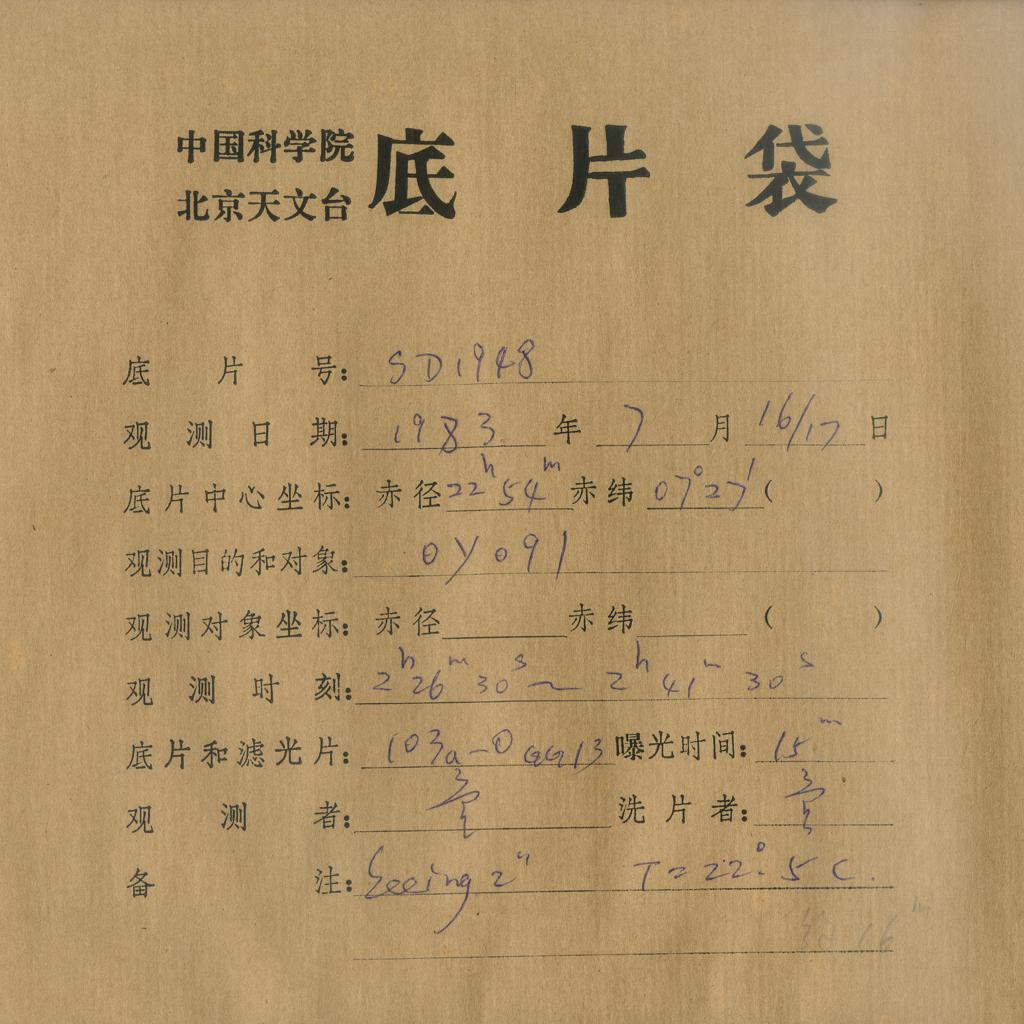 中国科学院
北京天文台
底片袋
底片号: SD1948
观测日期: 1983年7月16/17日
底片中心坐标: 赤径22h54m赤纬07°27′( )
观测目的和对象: OY091
观测对象坐标: 赤径 赤纬 ( )
观测时刻: 2h26m30s~2h41m30s
底片和滤光片: 103a-O GG13 曝光时间: 15m
观测者: 洗片者:
备注: Seeing 2″ T=22°.5C.
16m